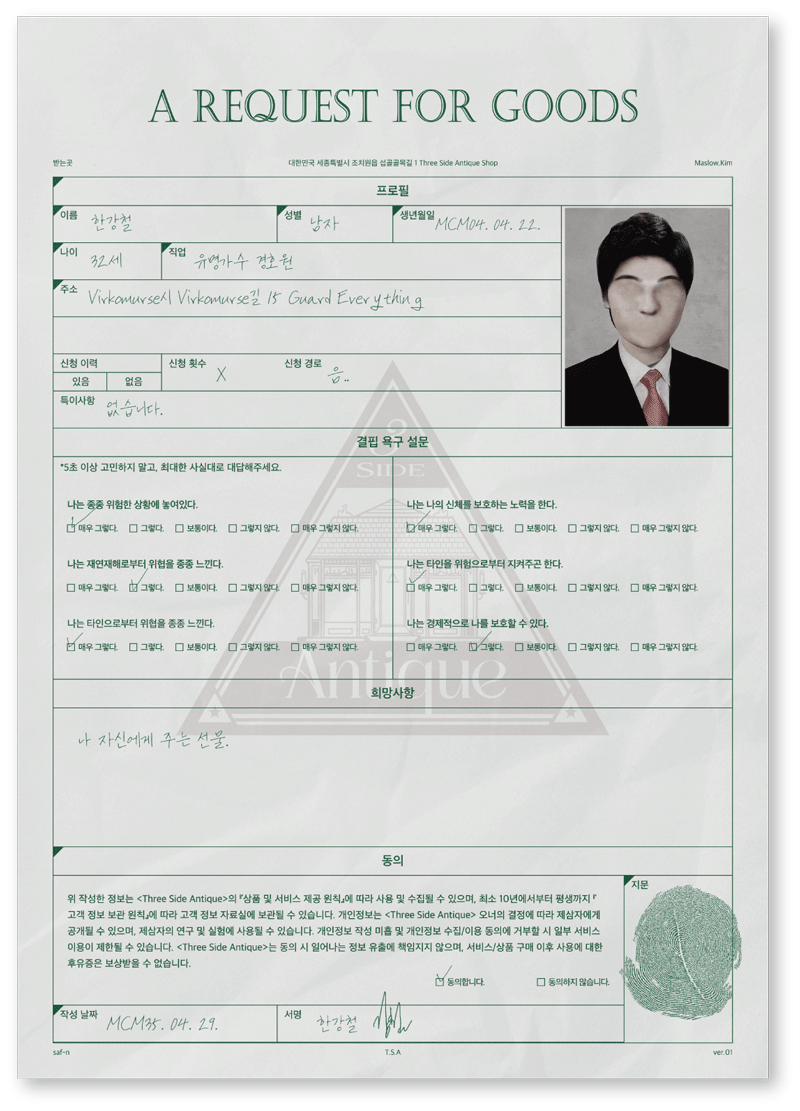 A REQUEST FOR GOODS
받는곳 대한민국 세종특별시 조치원읍 섭골골목길 1 Three Side Antique Shop Maslow.Kim
프로필
이름 한강철 성별 남자 생년월일 MCM04. 04. 22.
나이 32세 직업 유명가수 경호원
주소 Virkomurse시 Virkomurse길 15 Guard Everything
신청 이력 신청 횟수 X 신청 경로 음..
있음 없음
특이사항 없습니다.
결핍 욕구 설문
*5초 이상 고민하지 말고, 최대한 사실대로 대답해주세요.
나는 종종 위험한 상황에 놓여있다.
매우 그렇다. 그렇다. 보통이다. 그렇지 않다. 매우 그렇지 않다.
나는 재연재해로부터 위협을 종종 느낀다.
매우 그렇다. 그렇다. 보통이다. 그렇지 않다. 매우 그렇지 않다.
나는 타인으로부터 위협을 종종 느낀다.
매우 그렇다. 그렇다. 보통이다. 그렇지 않다. 매우 그렇지 않다.
나는 나의 신체를 보호하는 노력을 한다.
매우 그렇다. 그렇다. 보통이다. 그렇지 않다. 매우 그렇지 않다.
나는 타인을 위험으로부터 지켜주곤 한다.
매우 그렇다. 그렇다. 보통이다. 그렇지 않다. 매우 그렇지 않다.
나는 경제적으로 나를 보호할 수 있다.
매우 그렇다. 그렇다. 보통이다. 그렇지 않다. 매우 그렇지 않다.
3
SIDE
Antique
희망사항
나 자신에게 주는 선물.
동의
위 작성한 정보는 <Three Side Antique>의 『상품 및 서비스 제공 원칙』에 따라 사용 및 수집될 수 있으며, 최소 10년에서부터 평생까지 『
고객 정보 보관 원칙』에 따라 고객 정보 자료실에 보관될 수 있습니다. 개인정보는 <Three Side Antique> 오너의 결정에 따라 제삼자에게
공개될 수 있으며, 제삼자의 연구 및 실험에 사용될 수 있습니다. 개인정보 작성 미흡 및 개인정보 수집/이용 동의에 거부할 시 일부 서비스
이용이 제한될 수 있습니다. <Three Side Antique>는 동의 시 일어나는 정보 유출에 책임지지 않으며, 서비스/상품 구매 이후 사용에 대한
후유증은 보상받을 수 없습니다.
동의합니다. 동의하지 않습니다.
지문
작성 날짜 MCM35. 04. 29. 서명 한강철
saf-n T.S.A ver.01